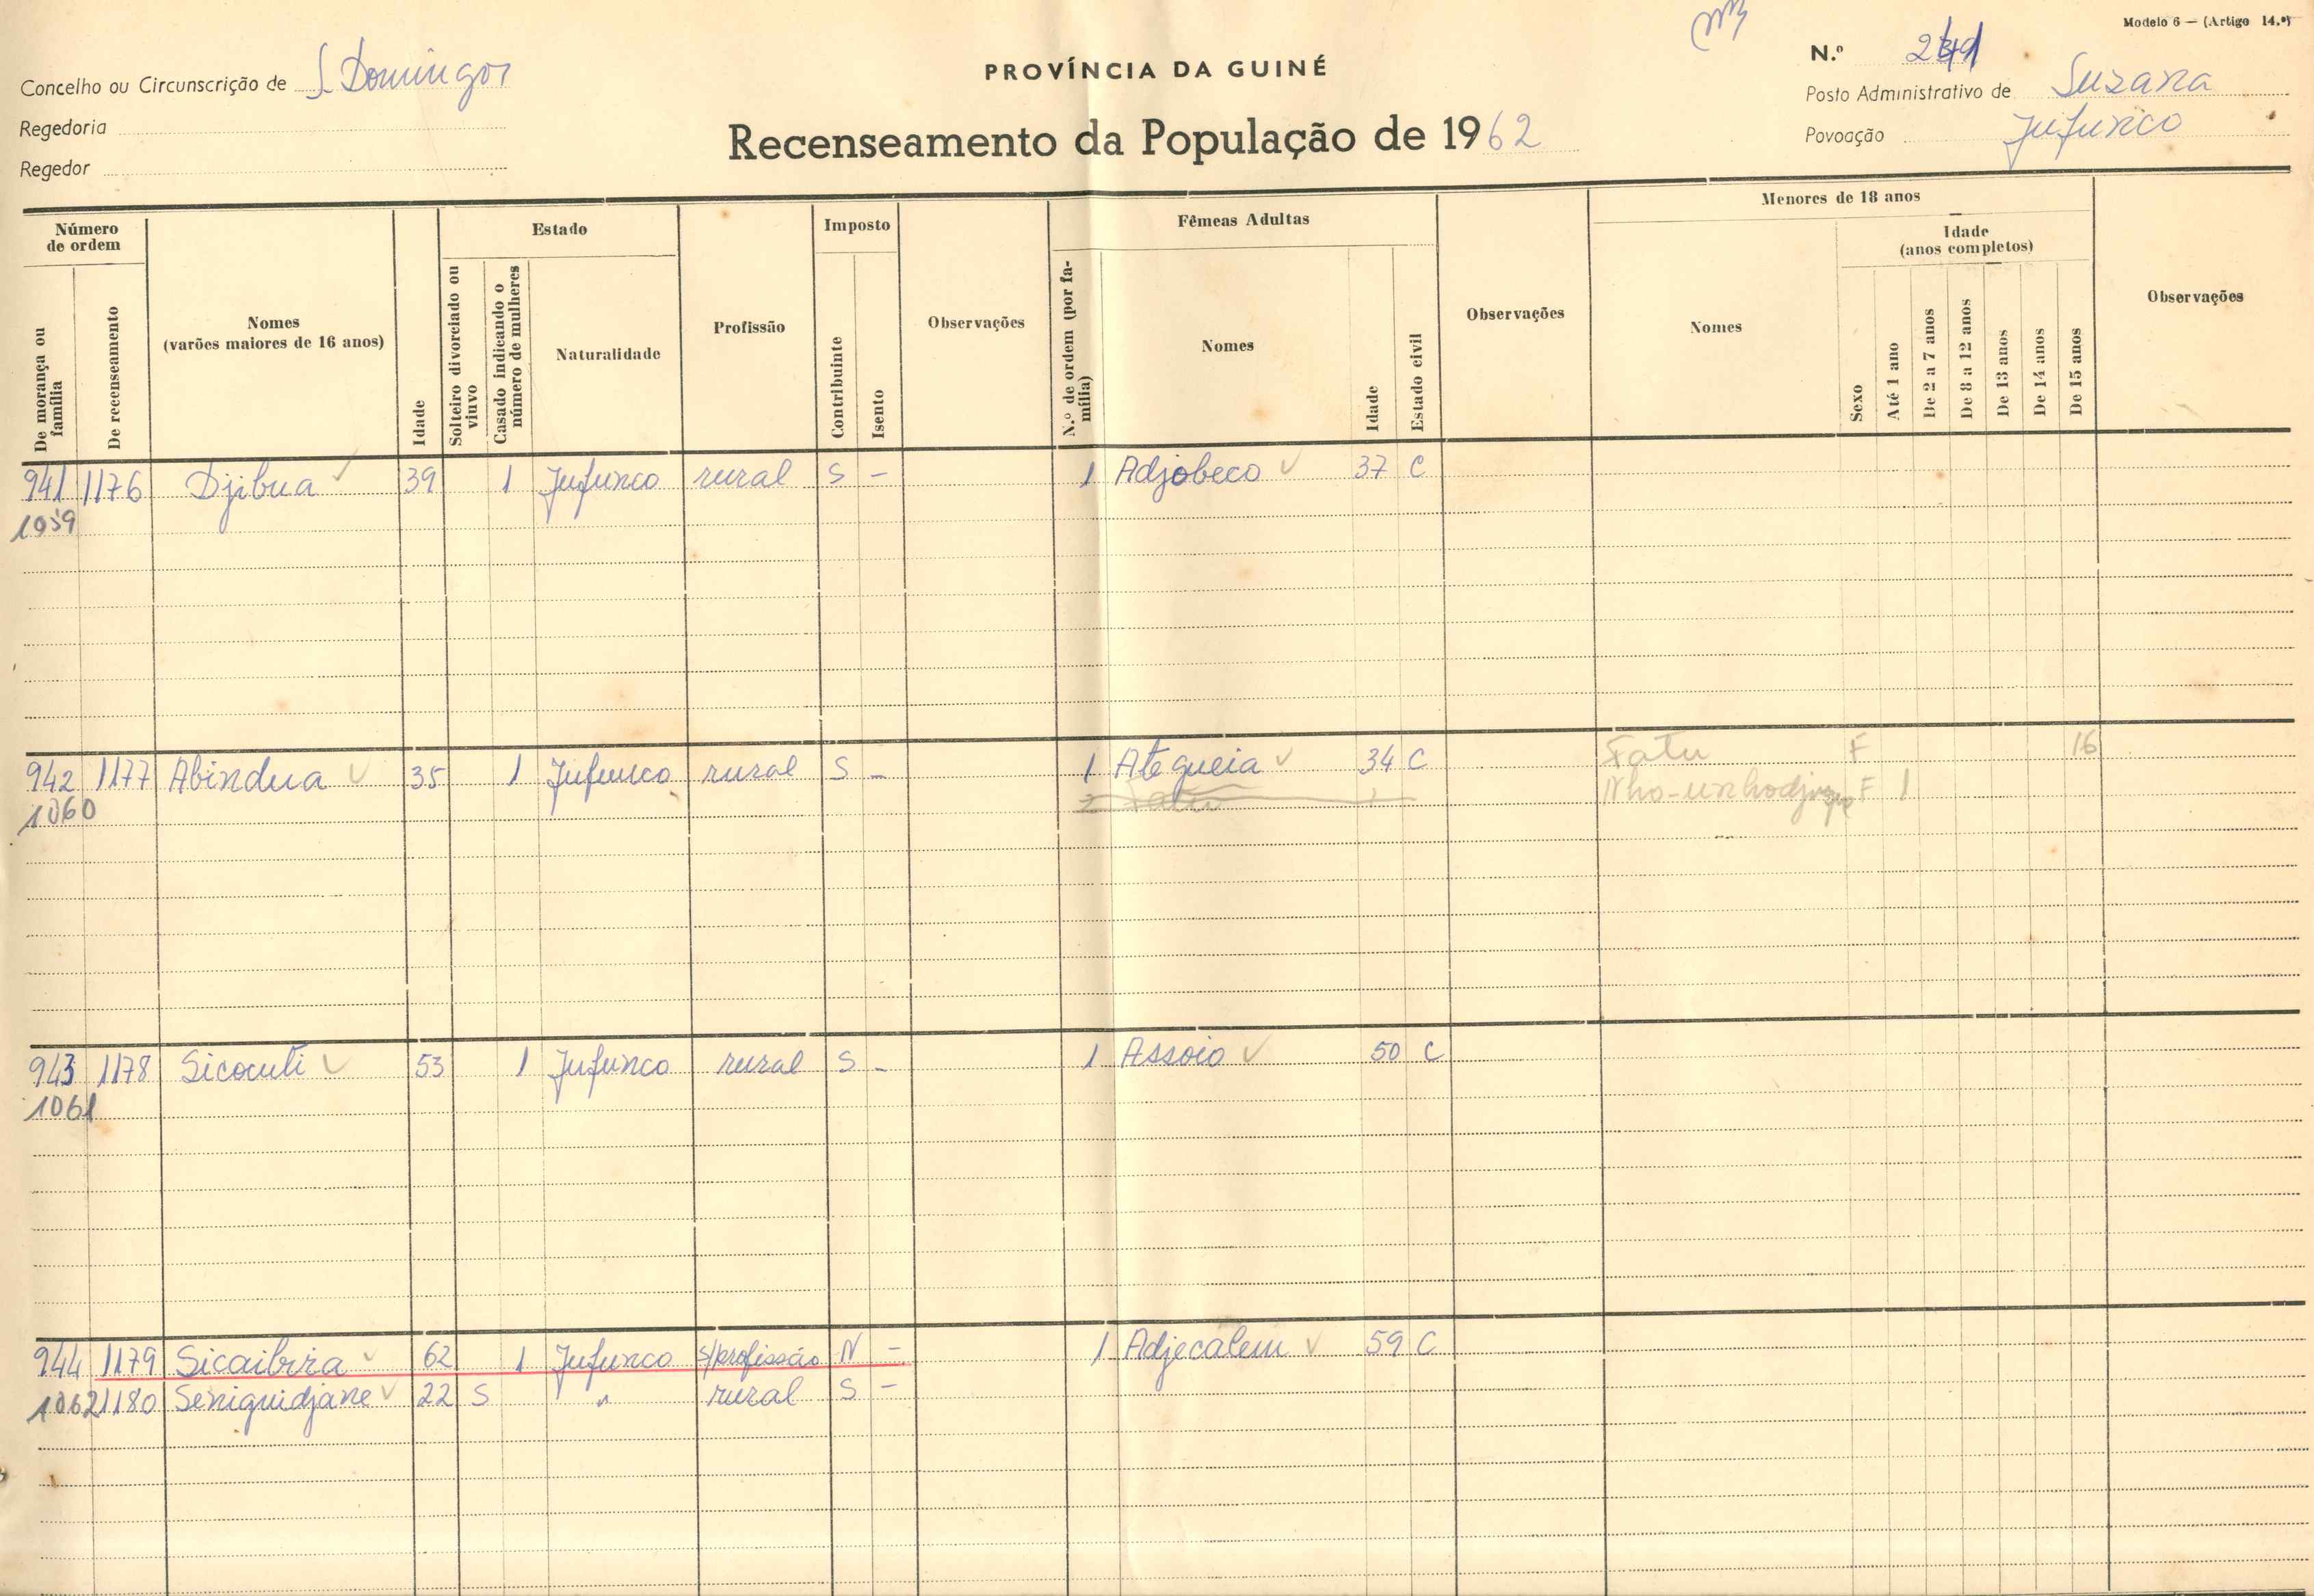 Modelo 6 — (Artigo 14.º)
Concelho ou Circunscrição de S. Domingos
PROVÍNCIA DA GUINÉ
N.º
Regedoria
Posto Administrativo de Suzana
Regedor
Recenseamento da População de 1962
Povoação Jufunco
Número de ordem
De morança ou família
De recenseamento
Nomes
(varões maiores de 16 anos)
Idade
Estado
Solteiro divorciado ou viuvo
Casado indicando o número de mulheres
Naturalidade
Profissão
Imposto
Contribuinte
Isento
Observações
Fêmeas Adultas
N.º de ordem (por família)
Nomes
Idade
Estado civil
Observações
Menores de 18 anos
Nomes
Sexo
Idade
(anos completos)
Até 1 ano
De 2 a 7 anos
De 8 a 12 anos
De 13 anos
De 14 anos
De 15 anos
Observações
941 1176 Djibua 39 1 Jufunco rural S - 1 Adjobeco 37 C
1059
942 1177 Abindua 35 1 Jufunco rural S - 1 Atequeia 34 C Fatu F 16
1060 2 Fatu F 1
943 1178 Sicouti 53 1 Jufunco rural S - 1 Assoio 50 C
1061
944 1179 Sicaibira 62 1 Jufunco s/profissão N - 1 Adjecalem 59 C
1062 1180 Seniquidjane 22 S " rural S -